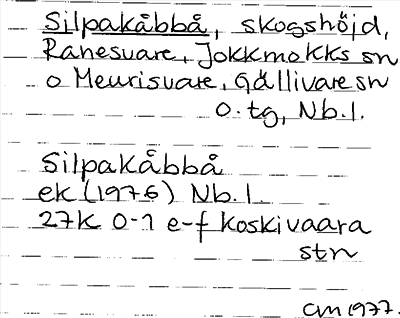 Silpakåbbå, skogshöjd,
Ranesvare, Jokkmokks sn
o Meurisvare, Gällivare sn
o. tg, Nb. l.
Silpakåbbå
ek (1976) Nb. l.
27K 0-1 e-f Koskivaara
stn
CM 1977.